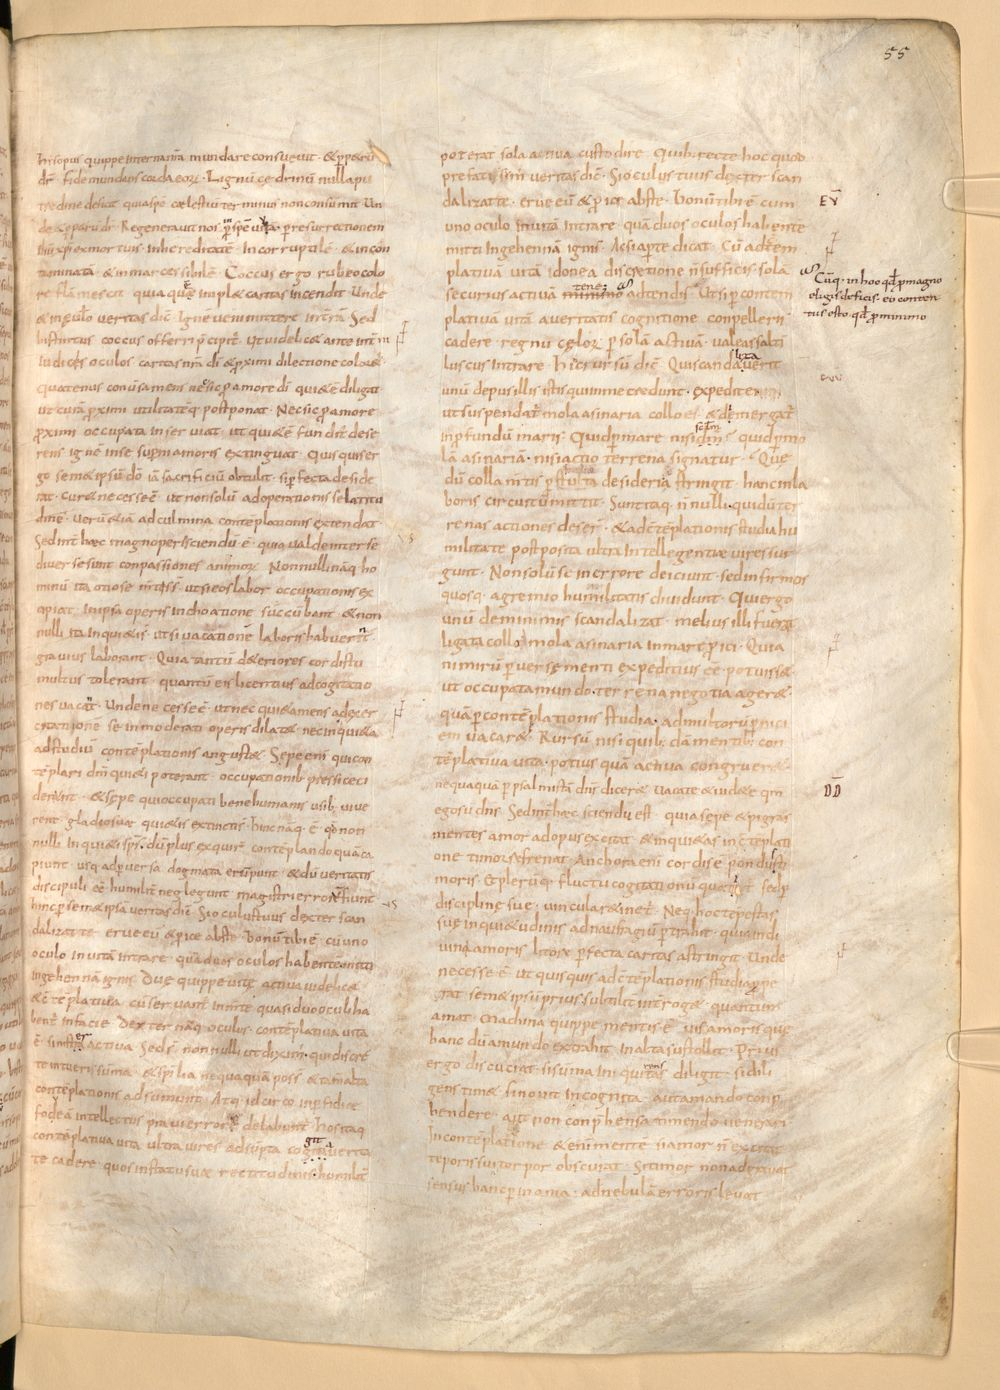 55
hisopus quippe interna nr̄a mundare consueuit · & p parū
dr̄ · fide mundans corda eorꝝ · Lignū cedrinū nulla pu
tredine deficit quia spē cælestiū terminus non consumit Un
de & p parū dr̄ · Regenerauit nos in spē uiuā p resurrectionem
ihū xp̄i ex mortuis · in hereditatē · Incorruptilē · & incon
taminatā · & inmarcessibilē · Coccus ergo rubeo colo
re flāmescit quia quē implet caritas incendit Unde
& in euḡlo ueritas dic̄ · Ignē ueni mittere in tr̄rā · Sed
bis tinctus coccus offerri p̄cipit᷑ · Ut uidelicet ante int᷑ni
iudicis oculos · caritas nr̄a di & p̄ximi dilectione coloret᷑
quatenus conūsa mens nec sic p amore di quietē diligat
ut curā p̄ximi utilitatēq postponat · Nec sic p amore
p̄ximi occupata inseruiat · ut quietē fundit᷑ dese
rens ignē in se supni amoris extinguat · Quisquis er
go semet ipsū dō iā sacrificiū obtulit · si p fecta deside
rat · curet necesse ē · ut non solū ad operationis se latitu
dinē · uerū & iā ad culmina contēplationis extendat ·
Sed int᷑ hæc magnopere sciendū ē · quia ualde inter se
diuerse sunt conpassiones animorꝝ · Non nulli nāq ho
minū ita otiose m̄tis s̄ · ut si eos labor occupationis ex
cipiat · in ipsa operis inchoatione succūbant · & non
nulli ita inquieti s̄ · ut si uacationē laboris habuerint
grauius laborant · Quia tantū deteriores cordis tu
multus tolerant · quantū eis licentius ad cogitatio
nes uacat · Unde necesse ē · ut nec quieta mens ad exer
citationē se inmoderati operis dilatet nec inquieta
ad studiū contēplationis angustet · Sepe eni qui con
tēplari dm̄ quieti poterant · occupationib pressi ceci
derunt · & sepe qui occupati bene humanis usib uiue
rent · gladio suæ quietis extincti s̄ · hinc nāq ē · qd̄ non
nulli inquieti sp̄s · dū plus exquir᷑t contēplando quā ca
piunt usq ad puersa dogmata erūpunt · & dū ueritatis
discipuli eē humilit᷑ neglegunt magistri errorū fiunt
hinc p semet ipsā ueritas dic̄ · Si oculus tuus dexter scan
dalizat te · erue eū & p̄ice abs te · bonū tibi ē cū uno
oculo in uitā intrare · quā duos oculos habentē mitti
in gehennā ignis · Due quippe uite actiua uidelicet
& cōtēplatiua · cū seruant᷑ in m̄te quasi duo oculi ha
bent᷑ in facie · Dexter nāq oculus · contēplatiua uita
ē · sinister actiua · Sed s̄ · non nulli ut diximꝰ · qui discre
te intueri summa · & sp̄talia nequaquā poss̄ & tam̄ alta
contēplationis adsumunt · Atq idcirco in pfidiæ
foueā intellectus praui errore delabunt᷑ · hos itaq
contēplatiua uita ultra uires adsūpta cogit a uerita
te cadere · quos in statu suæ rectitudinis humilit᷑
poterat sola actiua custodire · Quib recte hoc quod
prefati sumꝰ ueritas dic̄ · Si oculus tuus dexter scan
dalizat te · erue eū & p̄ice abs te · bonū tibi ē cum
uno oculo in uitā intrare · quā duos oculos habente
mitti in gehennā ignis · Ac si apte dicat · Cū ad cōtem
platiuā uitā idonea discretione n̄ sufficis · solā
securius actiuā tene · Ut si p contem
platiuā uitā a ueritatis cognitione conpelleris
cadere · regnū cęlorꝝ p solā actiuā · ualeas salti
luscus intrare · hic rursū dic̄ · Qui scandalizauerit
unū de pusillis istis qui in me credunt · expedit ei
ut suspendat᷑ mola asinaria collo ei · & demergat᷑
in p fundū maris · Quid p mare nisi sc̄lm · quid p mo
lā asinariā · nisi actio terrena signatur · Que
dū colla m̄tis p stulta desideria stringit · hanc in la
boris circuitū mittit · Sunt itaq n̄ nulli · qui dū ter
renas actiones deser᷑t · & ad cōtēplationis studia hu
militate postposita ultra intellegentiæ uires sur
gunt · Non solū se in errore deiciunt · sed infirmos
quosq · a gremio humilitatis diuidunt · Qui ergo
unū de minimis scandalizat · melius illi fuerat
ligata collo mola asinaria in mare p̄ici · Quia
nimirū p uerse menti expeditius eē potuisset
ut occupata mundo · terrena negotia ageret
quā p contēplationis studia · ad multorū p nici
em uacaret · Rursū nisi quib dā mentib con
tēplatiua uita · potius quā actiua congrueret
nequaquā p psalmistā dn̄s diceret · uacate & uidete qm̄
ego sū dn̄s · Sed int᷑ hæc sciendū est · quia sepe & pigras
mentes amor ad opus excitat · & inquietas in cōtēplati
one timor refrenat · Anchora eni cordis ē · pondus ti
moris · Et plerūq fluctu cogitationū quatit᷑ · sed p
disciplinę suę · uincula retinet᷑ · Neq hoc tēpestas
suę inquietudinis ad naufragiū p trahit · quia in di
uini amoris litore p fecta caritas astringit · Unde
necesse ē · ut quisquis ad cōtēplationis studia p pe
rat · semet ipsū prius subtilit᷑ interroget · quantum
amat · Machina quippe mentis ē · uis amoris que
hanc dū a mundo extrahit · in alta sustollit · Prius
ergo discutiat · si summa inquirens diligit · si dili
gens timet · si nouit incognita · aut amando con p
hendere · aut non con p hensa timendo uenerari
In contēplatione & eni mentē si amor n̄ excitat
teporis sui torpor obscurat · Si timor non adgrauat
sensus hanc p inania · ad nebulā erroris leuat
EV̄
Cūq · in hoc qd̄ p magno
eligis deficis · eo conten
tus esto · qd̄ p minimo
D̄D̄